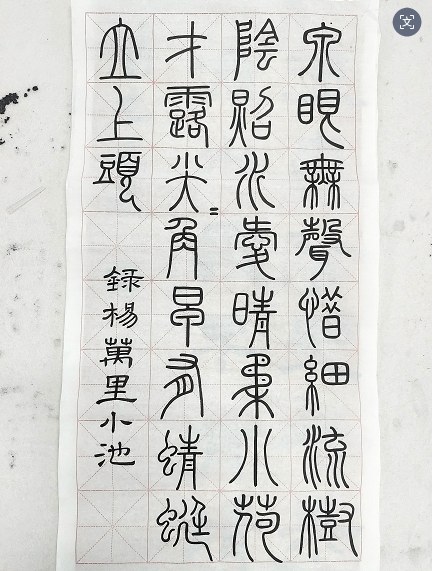 泉眼無聲惜細流樹
陰照水愛晴柔小荷
才露尖角早有蜻蜓
立上頭
録楊萬里小池